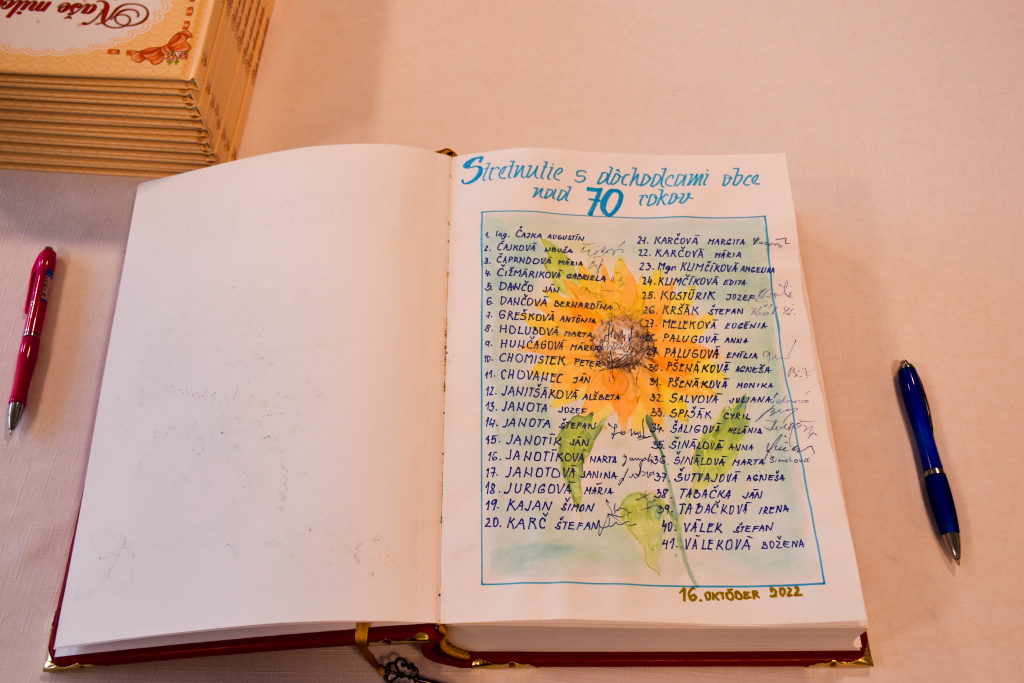 Naše
Stretnutie s dôchodcami obce
nad 70 rokov
1. Ing. ČAJKA AUGUSTÍN
2. ČAJKOVÁ
3. ČAPRNDOVÁ MÁRIA
4. ČIŽMÁRIKOVÁ GABRIELA
5. DANČO JÁN
6. DANČOVÁ BERNARDÍNA
7. GREŠKOVÁ ANTÓNIA
8. HOLUBOVÁ MARTA
9. HUNČAGOVÁ MÁRIA
10. CHOMISTEK PETER
11. CHOVANEC JÁN
12. JANITŠÁKOVÁ ALŽBETA
13. JANOTA JOZEF
14. JANOTA ŠTEFAN
15. JANOTÍK JÁN
16. JANOTÍKOVÁ MARTA
17. JANOTOVÁ JANINA
18. JURIGOVÁ MÁRIA
19. KAJAN ŠIMON
20. KARČ ŠTEFAN
21. KARČOVÁ MARGITA
22. KARČOVÁ MÁRIA
23. Mgr. KLIMČÍKOVÁ ANGELINA
24. KLIMČÍKOVÁ EDITA
25. KOSTÚRIK JOZEF
26. KRŠÁK ŠTEFAN
27. MELEKOVÁ EUGÉNIA
28. PALUGOVÁ ANNA
29. PALUGOVÁ EMÍLIA
30. PŠENÁKOVÁ AGNEŠA
31. PŠENÁKOVÁ MONIKA
32. SALVOVÁ JULIANA
33. SPIŠÁK CYRIL
34. ŠALIGOVÁ MELÁNIA
35. ŠINÁLOVÁ ANNA
36. ŠINÁLOVÁ MARTA Šinálová
37. ŠUTVAJOVÁ AGNEŠA
38. TABAČKA JÁN
39. TABAČKOVÁ IRENA
40. VÁLEK ŠTEFAN
41. VÁLEKOVÁ BOŽENA
16. OKTÓBER 2022